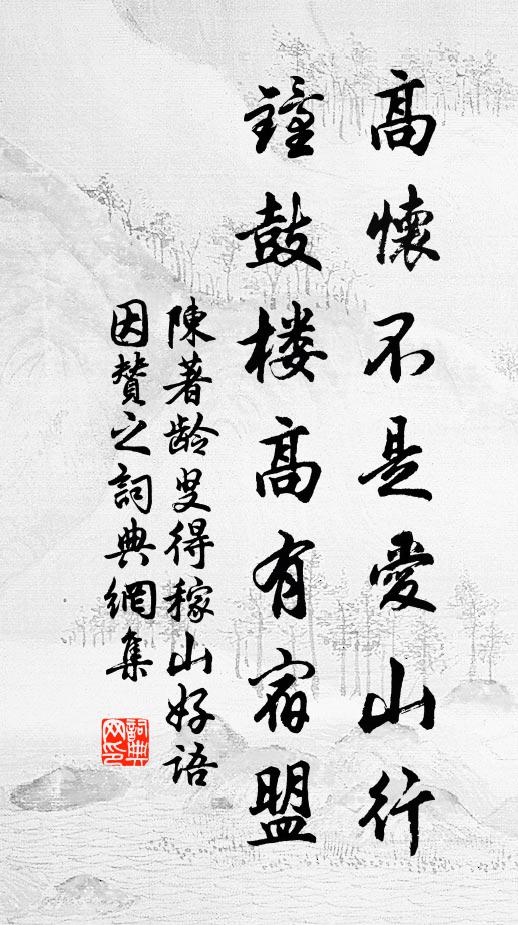 高懷不是愛山行
鐘鼓楼高有宿盟
陳著龄叟得稼山好语
因賛之詞典網集
詞典網印